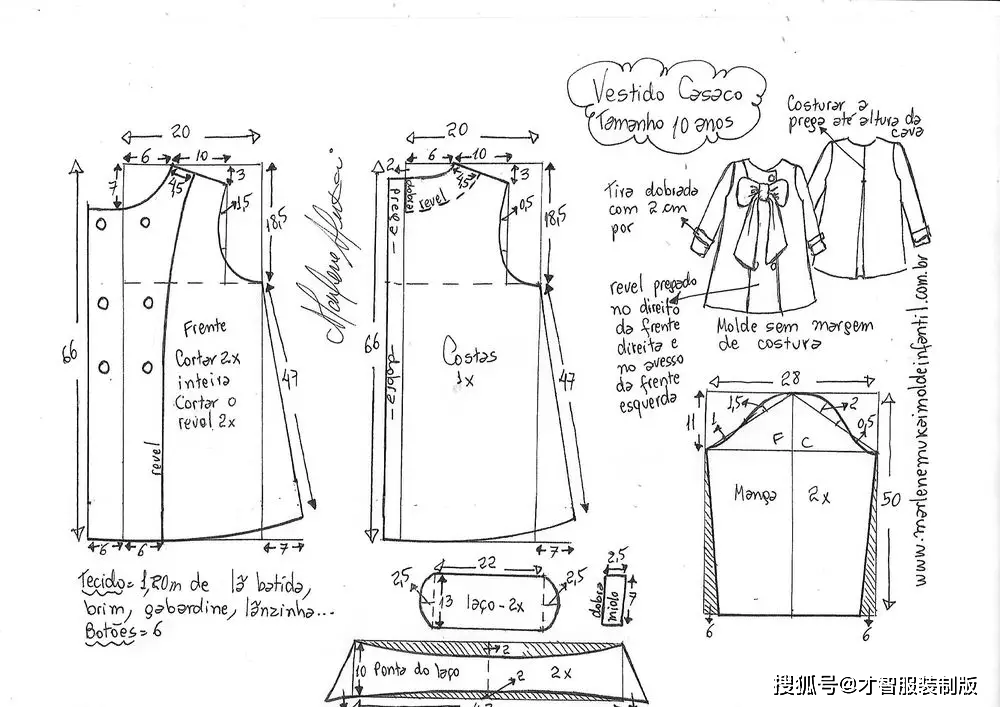 Vestido Casaco
Tamanho 10 anos
Costurar a
prega até altura da
cava
Tira dobrada
com 2 cm
por
revel pregado
no direito
da frente
direita e
no avesso
da frente
esquerda
Molde sem margem
de costura
www.marlenemukaimoldeinfantil.com.br
20
6
10
7
4,5
3
1,5
18,5
66
47
Frente
Cortar 2x
inteira
Cortar o
revel 2x
revel
6
6
7
20
2
6
10
4,5
3
0,5
18,5
prega
dobra
revel
66
47
Costas
1x
dobra
7
28
11
1,5
2
1
0,5
F
C
Manga
2x
50
6
6
Tecido = 1,20m de lã batida,
brim, gabardine, lãnzinha...
Botões = 6
22
2,5
2,5
13
laço - 2x
2,5
dobra
miolo
7
2
10
Ponta do laço
2x
2
搜狐号@才智服装制版